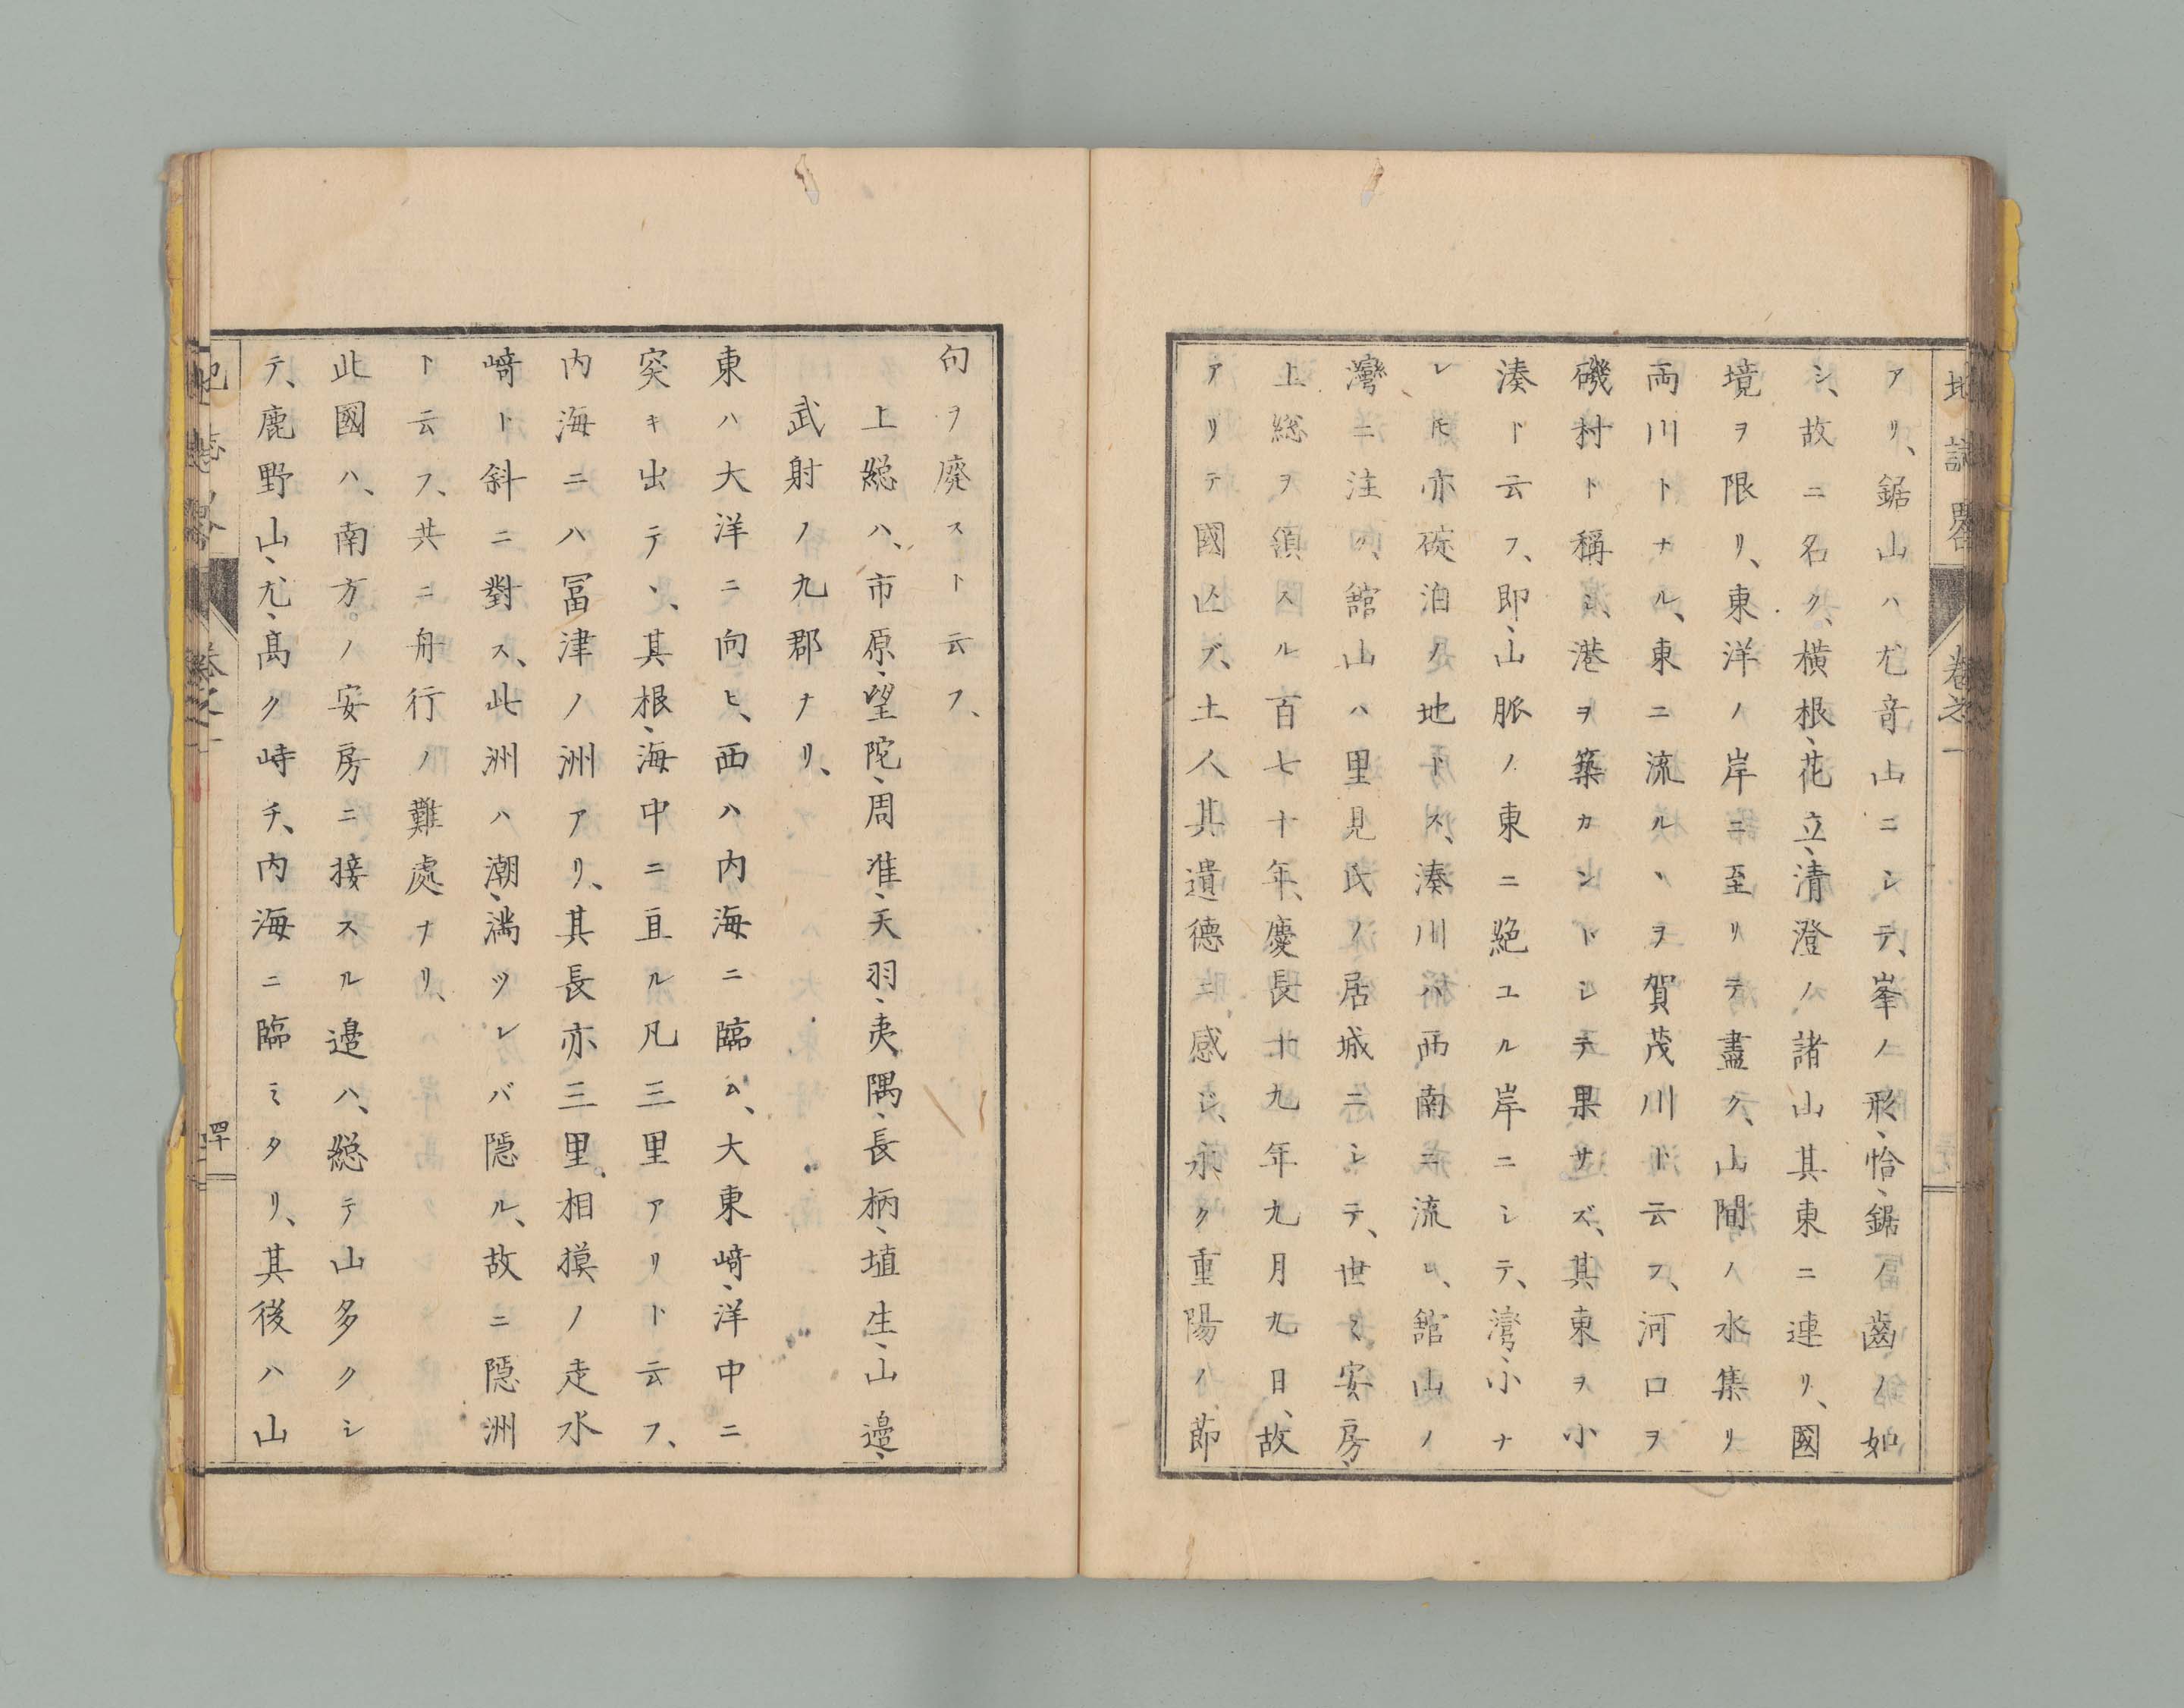 地誌畧 卷之一
アリ、鋸山ハ尤音山ニシテ、峯ノ形、恰、鋸ノ齒ノ如
シ、故ニ名ク、横根、花立、清澄ノ諸山其東ニ連リ、國
境ヲ限リ、東洋ノ岸ニ至リテ盡ク、山間ノ水集リ
両川トナル、東ニ流ルヽヲ賀茂川ト云フ、河口ヲ
磯村ト稱シ、港ヲ築カントシテ果サズ、其東ヲ小
湊ト云フ、即、山脈ノ東ニ絶ユル岸ニシテ、灣、小ナ
レ𪜈亦碇泊ノ地トス、湊川ハ西南ニ流レ、舘山ノ
灣ニ注ク、舘山ハ里見氏ノ居城ニシテ、世々安房、
上総ヲ領スル百七十年、慶長十九年九月九日、故
アリテ國亡ブ、土人其遺德ニ感ジ、永ク重陽ノ節
句ヲ廢スト云フ、
上総ハ、市原、望陀、周准、天羽、夷隅、長柄、埴生、山邉、
武射ノ九郡ナリ、
東ハ大洋ニ向ヒ、西ハ内海ニ臨ム、大東﨑、洋中ニ
突キ出テヽ、其根、海中ニ亘ル凡三里アリト云フ、
内海ニハ冨津ノ洲アリ、其長亦三里、相摸ノ走水
﨑ト斜ニ對ス、此洲ハ潮、満ツレバ隠ル、故ニ隠洲
ト云フ、共ニ舟行ノ難處ナリ、
此國ハ、南方ノ安房ニ接スル邉ハ、総テ山多クシ
テ、鹿野山、尤、髙ク峙チ、内海ニ臨ミタリ、其後ハ山
地誌畧 卷之一 四十